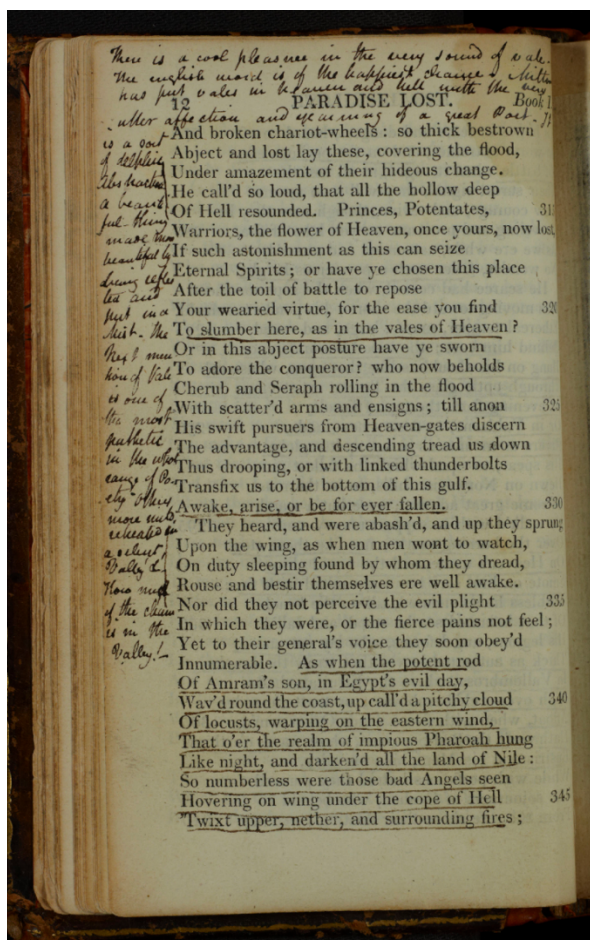 There is a cool pleasure in the very sound of vale.
The english word is of the happiest chance. Milton
has put vales in heaven and hell with the very
12 PARADISE LOST. Book I.
utter affection and yearning of a great Poet. It
is a sort
of delphic
Abstraction
a beauti
ful thing
made more
beautiful by
being reflec
ted and
put in a
Mist. The
Next men
tion of Vale
is one of
the most
pathetic
in the whole
range of Poe
try Others
more mild,
retreated in
a silent
Valley &c.
How much
of the charm
is in the
Valley!—
And broken chariot-wheels: so thick bestrown
Abject and lost lay these, covering the flood,
Under amazement of their hideous change.
He call'd so loud, that all the hollow deep
Of Hell resounded. Princes, Potentates, 315
Warriors, the flower of Heaven, once yours, now lost
If such astonishment as this can seize
Eternal Spirits; or have ye chosen this place
After the toil of battle to repose
Your wearied virtue, for the ease you find 320
To slumber here, as in the vales of Heaven?
Or in this abject posture have ye sworn
To adore the conqueror? who now beholds
Cherub and Seraph rolling in the flood
With scatter'd arms and ensigns; till anon 325
His swift pursuers from Heaven-gates discern
The advantage, and descending tread us down
Thus drooping, or with linked thunderbolts
Transfix us to the bottom of this gulf.
Awake, arise, or be for ever fallen. 330
They heard, and were abash'd, and up they sprung
Upon the wing, as when men wont to watch,
On duty sleeping found by whom they dread,
Rouse and bestir themselves ere well awake.
Nor did they not perceive the evil plight 335
In which they were, or the fierce pains not feel;
Yet to their general's voice they soon obey'd
Innumerable. As when the potent rod
Of Amram's son, in Egypt's evil day,
Wav'd round the coast, up call'd a pitchy cloud 340
Of locusts, warping on the eastern wind,
That o'er the realm of impious Pharoah hung
Like night, and darken'd all the land of Nile:
So numberless were those bad Angels seen
Hovering on wing under the cope of Hell 345
'Twixt upper, nether, and surrounding fires;